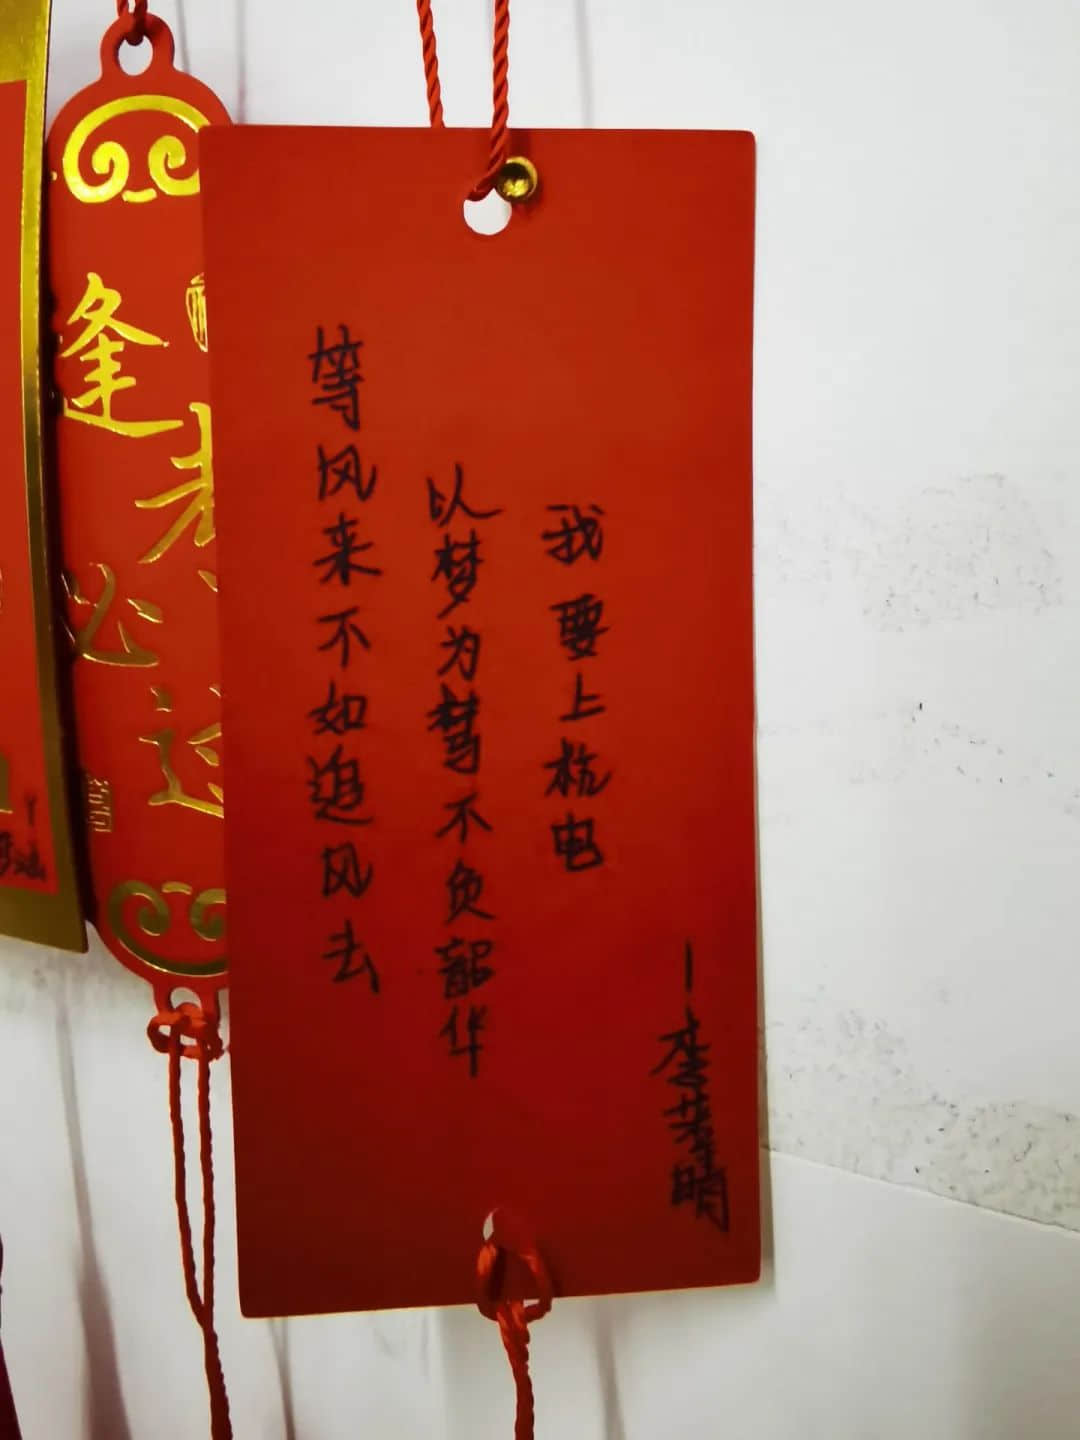 逢考必过
等风来不如追风去
以梦为马不负韶华
我要上杭电
—李